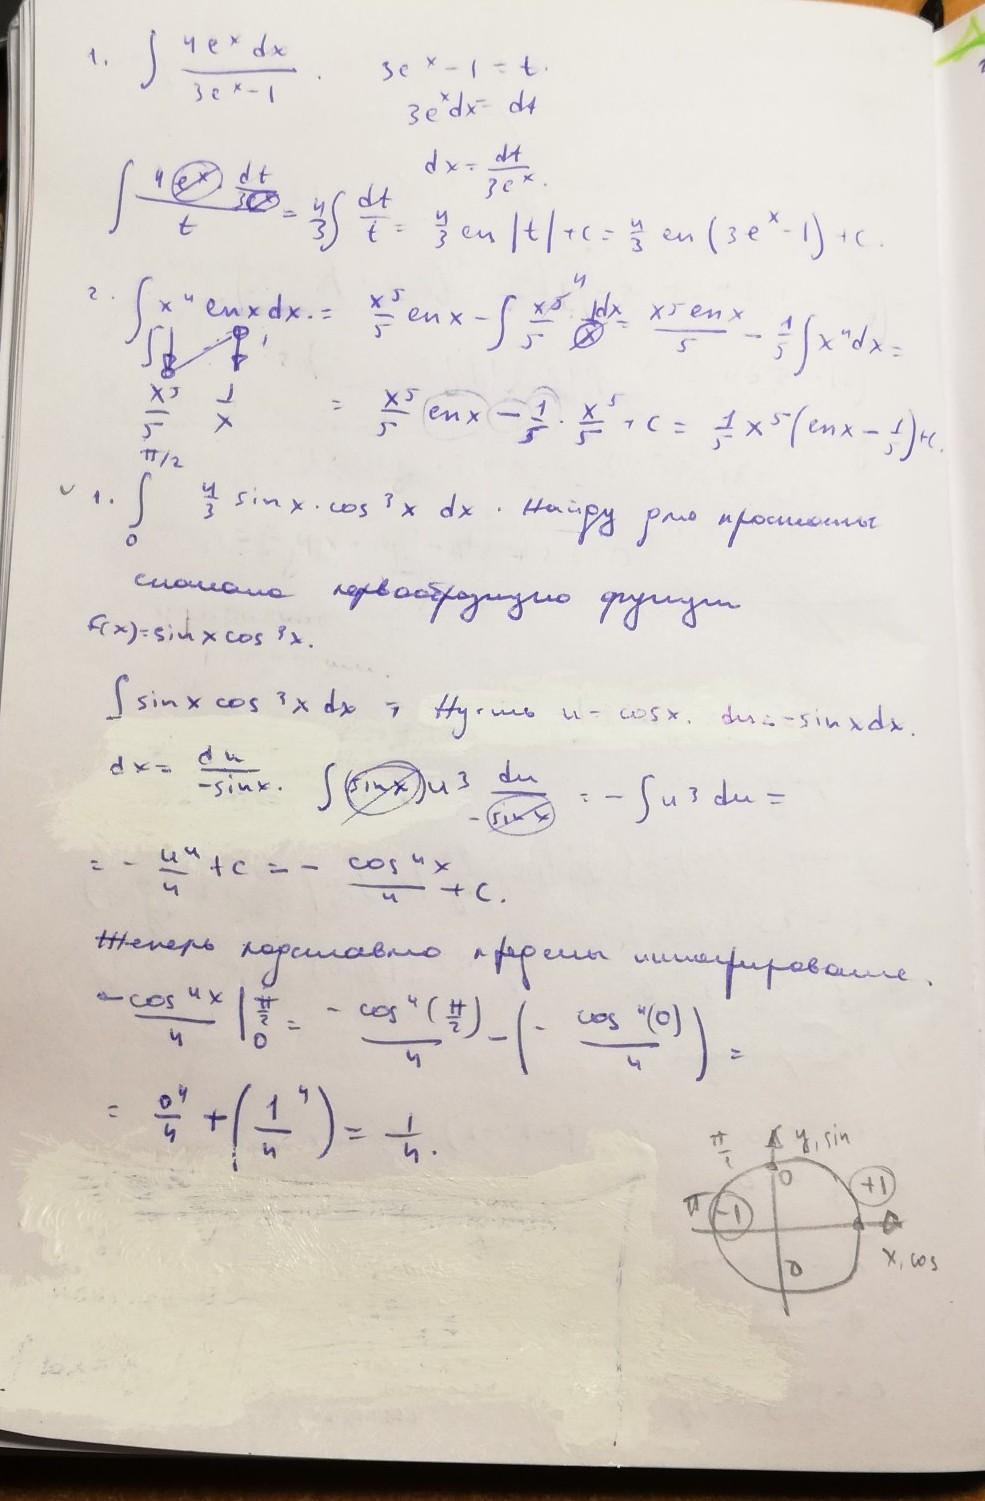 1. ∫ 4e^x dx / 3e^x-1 . 3e^x - 1 = t.
3e^x dx = dt
dx = dt/3e^x.
∫ 4e^x · dt/3e^x / t = 4/3 ∫ dt/t = 4/3 ln |t| + c = 4/3 ln (3e^x - 1) + c.
2. ∫ x^4 ln x dx. = x^5/5 ln x - ∫ x^5/5 · 1dx/x = x^5 ln x/5 - 1/5 ∫ x^4 dx =
x^5/5 1/x = x^5/5 ln x - 1/5 · x^5/5 + c = 1/5 x^5 (ln x - 1/5) + c.
√ 1. ∫_0^π/2 4/3 sin x · cos^3 x dx. Найду для простоты
сначала первообразную функции
f(x) = sin x cos^3 x.
∫ sin x cos^3 x dx ⇒ Пусть u = cos x. du = -sin x dx.
dx = du/-sin x. ∫ sin x u^3 du/-sin x = - ∫ u^3 du =
= - u^4/4 + c = - cos^4 x/4 + c.
Теперь подставлю пределы интегрирование.
-cos^4 x/4 |_0^π/2 = - cos^4 (π/2)/4 - (- cos^4 (0)/4) =
= 0^4/4 + (1^4/4) = 1/4.
π/2 y, sin
0 +1
π -1
x, cos
0